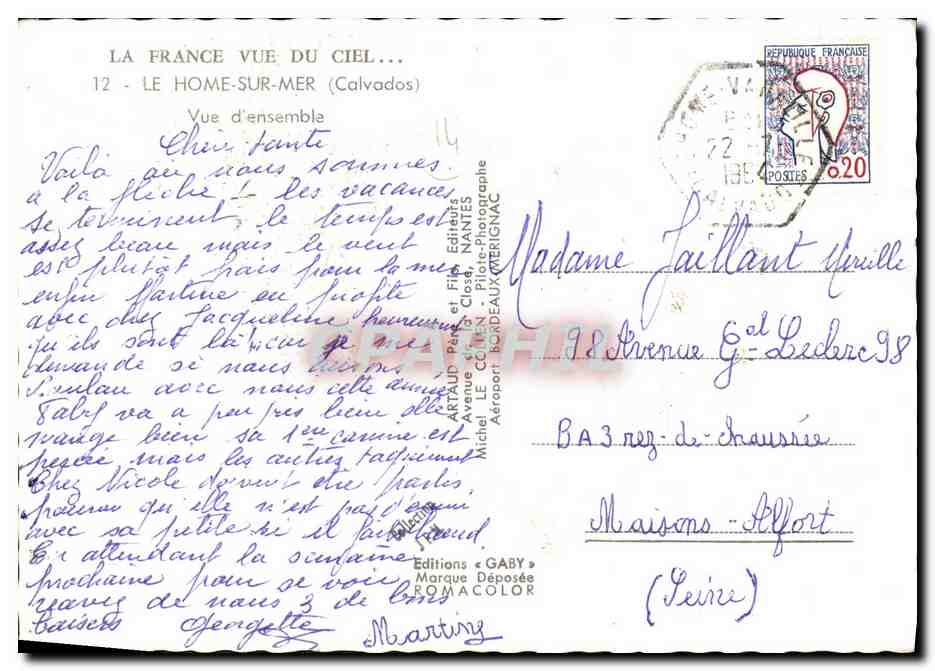 LA FRANCE VUE DU CIEL...
12 - LE HOME-SUR-MER (Calvados)
Vue d'ensemble
14
Chère tante
Voilà ou nous sommes
a la flèche ! les vacances
se terminent, le temps est
assez beau mais le vent
est plutôt frais pour la mer
enfin Martine en profite
avec chez Jacqueline heureusement
qu'ils sont là car je me
demande si nous
avec nous cette année
Faby va a peu près bien elle
mange bien sa 1ère canine est
percée mais les autres taquinent
Chez Nicole doivent être partis
pourvu qu'elle n'est pas d'ennui
avec sa petite si il fait chaud
En attendant la semaine
prochaine pour se voir
recevez de nous 3 de bons
baisers Georgette
Martine
ARTAUD Père et Fils, Editeurs
Avenue de la Close, NANTES
Michel LE COLLEN - Pilote-Photographe
Aéroport BORDEAUX-MERIGNAC
Collection
Editions « GABY »
Marque Déposée
ROMACOLOR
CPAPHIL
HOME-VARAVILLE
22 - 7
CALVADOS
REPUBLIQUE FRANÇAISE
POSTES 0,20
Madame Jaillant Mireille
98 Avenue Gal Leclerc 98
BA3 rez-de-chaussée
Maisons-Alfort
(Seine)